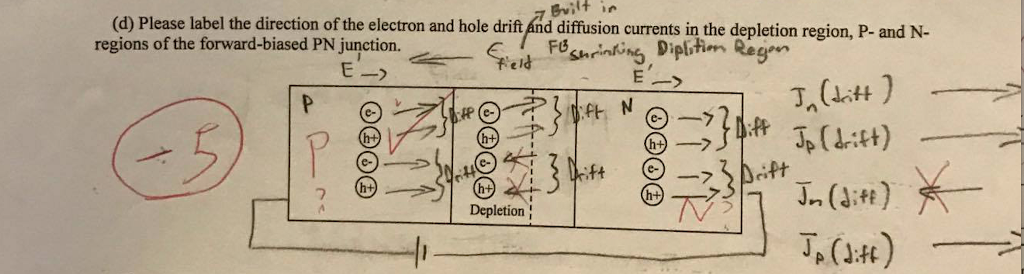 Built in
(d) Please label the direction of the electron and hole drift and diffusion currents in the depletion region, P- and N-
regions of the forward-biased PN junction.
E field
FB shrinking Diplition Region
E'
E'
P
N
e- Diff e- Diff e- Diff
h+ h+ h+
e- Drift e- Drift e- Drift
h+ h+ h+
Depletion
P
?
N?
-5
Jn (drift)
Jp (drift)
Jn (diff)
Jp (diff)